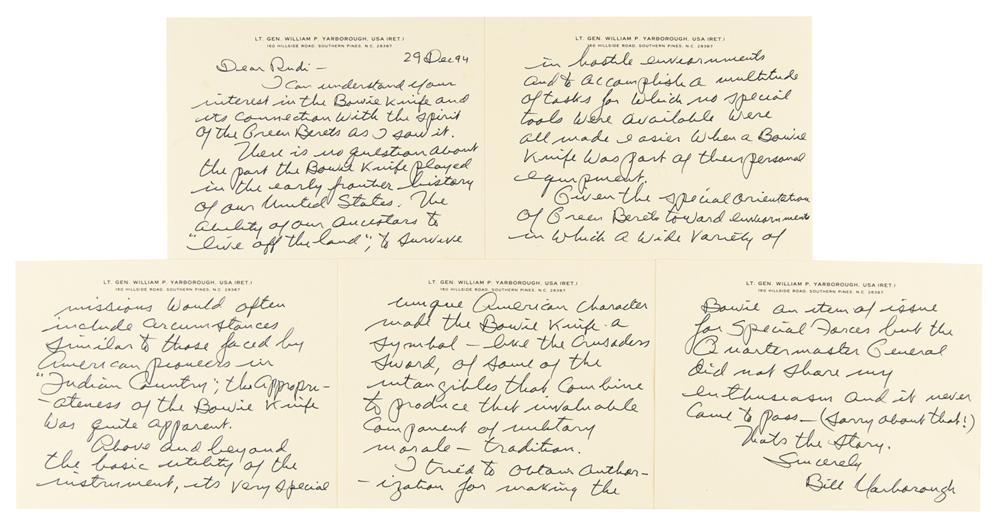 LT. GEN. WILLIAM P. YARBOROUGH, USA (RET.)
160 HILLSIDE ROAD, SOUTHERN PINES, N.C. 28387
29 Dec 94
Dear Rudi -
I can understand your
interest in the Bowie Knife and
its connection with the spirit
of the Green Berets as I saw it.
There is no question about
the part the Bowie Knife played
in the early frontier history
of our United States. The
ability of our ancestors to
"live off the land", to survive
LT. GEN. WILLIAM P. YARBOROUGH, USA (RET.)
160 HILLSIDE ROAD, SOUTHERN PINES, N.C. 28387
in hostile environments
and to accomplish a multitude
of tasks for which no special
tools were available were
all made easier when a Bowie
Knife was part of their personal
equipment.
Given the special orientation
of Green Berets toward environments
in which a wide variety of
LT. GEN. WILLIAM P. YARBOROUGH, USA (RET.)
160 HILLSIDE ROAD, SOUTHERN PINES, N.C. 28387
missions would often
include circumstances
similar to those faced by
American pioneers in
"Indian Country", the appropri-
-ateness of the Bowie Knife
was quite apparent.
Above and beyond
the basic utility of the
instrument, its very special
LT. GEN. WILLIAM P. YARBOROUGH, USA (RET.)
160 HILLSIDE ROAD, SOUTHERN PINES, N.C. 28387
unique American character
made the Bowie Knife a
symbol - like the Crusaders
Sword, of some of the
intangibles that combine
to produce that invaluable
component of military
morale - tradition.
I tried to obtain author-
-ization for making the
LT. GEN. WILLIAM P. YARBOROUGH, USA (RET.)
160 HILLSIDE ROAD, SOUTHERN PINES, N.C. 28387
Bowie an item of issue
for Special Forces but the
Quartermaster General
did not share my
enthusiasm and it never
came to pass - (Sorry about that!)
That's the story.
Sincerely
Bill Yarborough